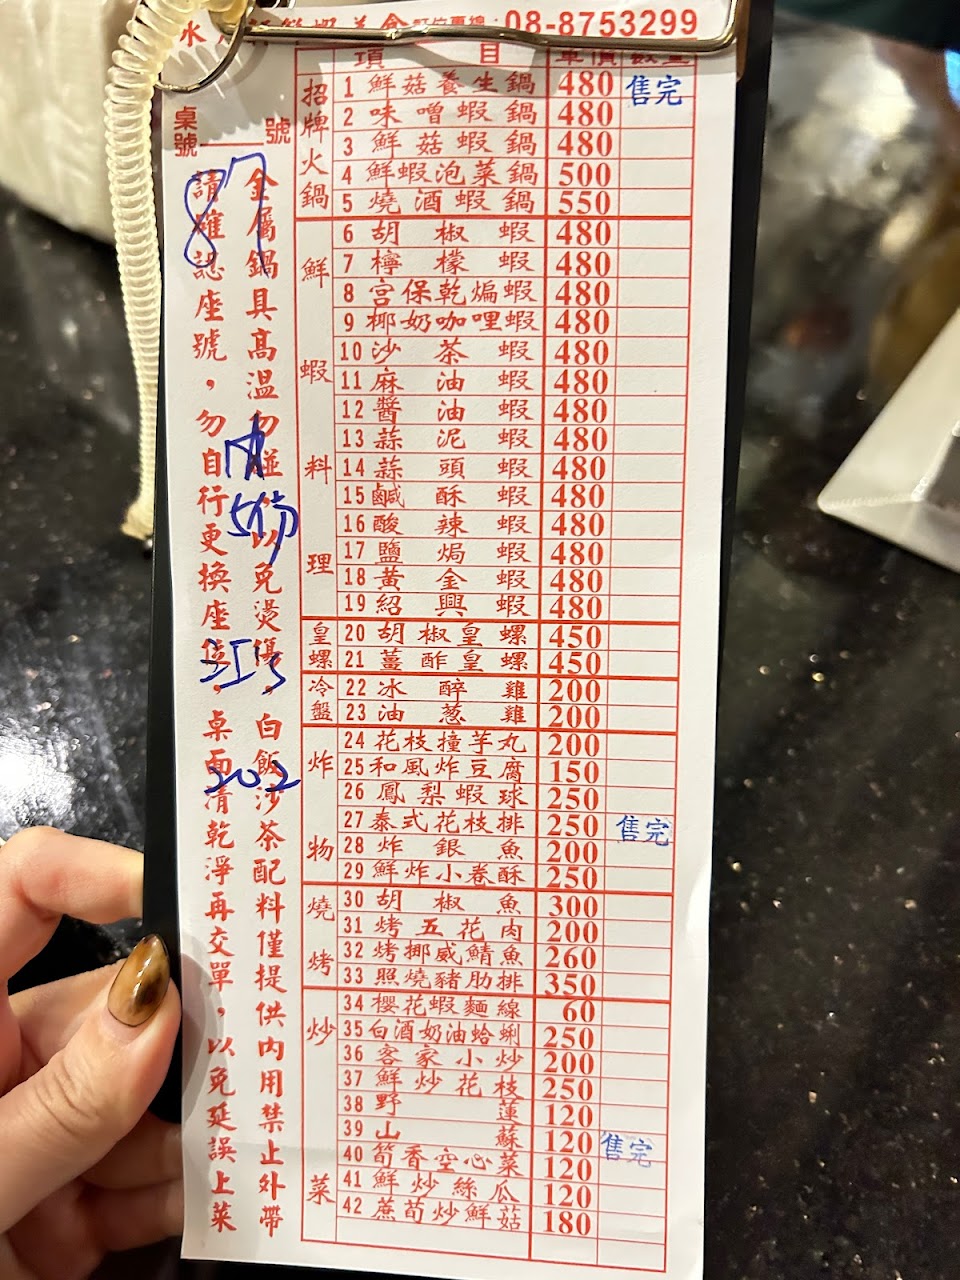 08-8753299
項目 單價 數量
招牌火鍋
1 鮮菇養生鍋 480 售完
2 味噌蝦鍋 480
3 鮮菇蝦鍋 480
4 鮮蝦泡菜鍋 500
5 燒酒蝦鍋 550
鮮蝦料理
6 胡椒蝦 480
7 檸檬蝦 480
8 宮保乾煸蝦 480
9 椰奶咖哩蝦 480
10 沙茶蝦 480
11 麻油蝦 480
12 醬油蝦 480
13 蒜泥蝦 480
14 蒜頭蝦 480
15 鹹酥蝦 480
16 酸辣蝦 480
17 鹽焗蝦 480
18 黃金蝦 480
19 紹興蝦 480
皇螺
20 胡椒皇螺 450
21 薑酢皇螺 450
冷盤
22 冰醉雞 200
23 油蔥雞 200
炸物
24 花枝撞芋丸 200
25 和風炸豆腐 150
26 鳳梨蝦球 250
27 泰式花枝排 250 售完
28 炸銀魚 200
29 鮮炸小卷酥 250
燒烤
30 胡椒魚 300
31 烤五花肉 200
32 烤挪威鯖魚 260
33 照燒豬肋排 350
炒菜
34 櫻花蝦麵線 60
35 白酒奶油蛤蜊 250
36 客家小炒 200
37 鮮炒花枝 250
38 野蓮 120
39 山蘇 120 售完
40 筍香空心菜 120
41 鮮炒絲瓜 120
42 蔗筍炒鮮菇 180
桌號 號
87
金屬鍋具高溫勿碰以免燙傷，白飯沙茶配料僅提供內用禁止外帶
請確認座號，勿自行更換座位，桌面清乾淨再交單，以免延誤上菜
內
5份
202